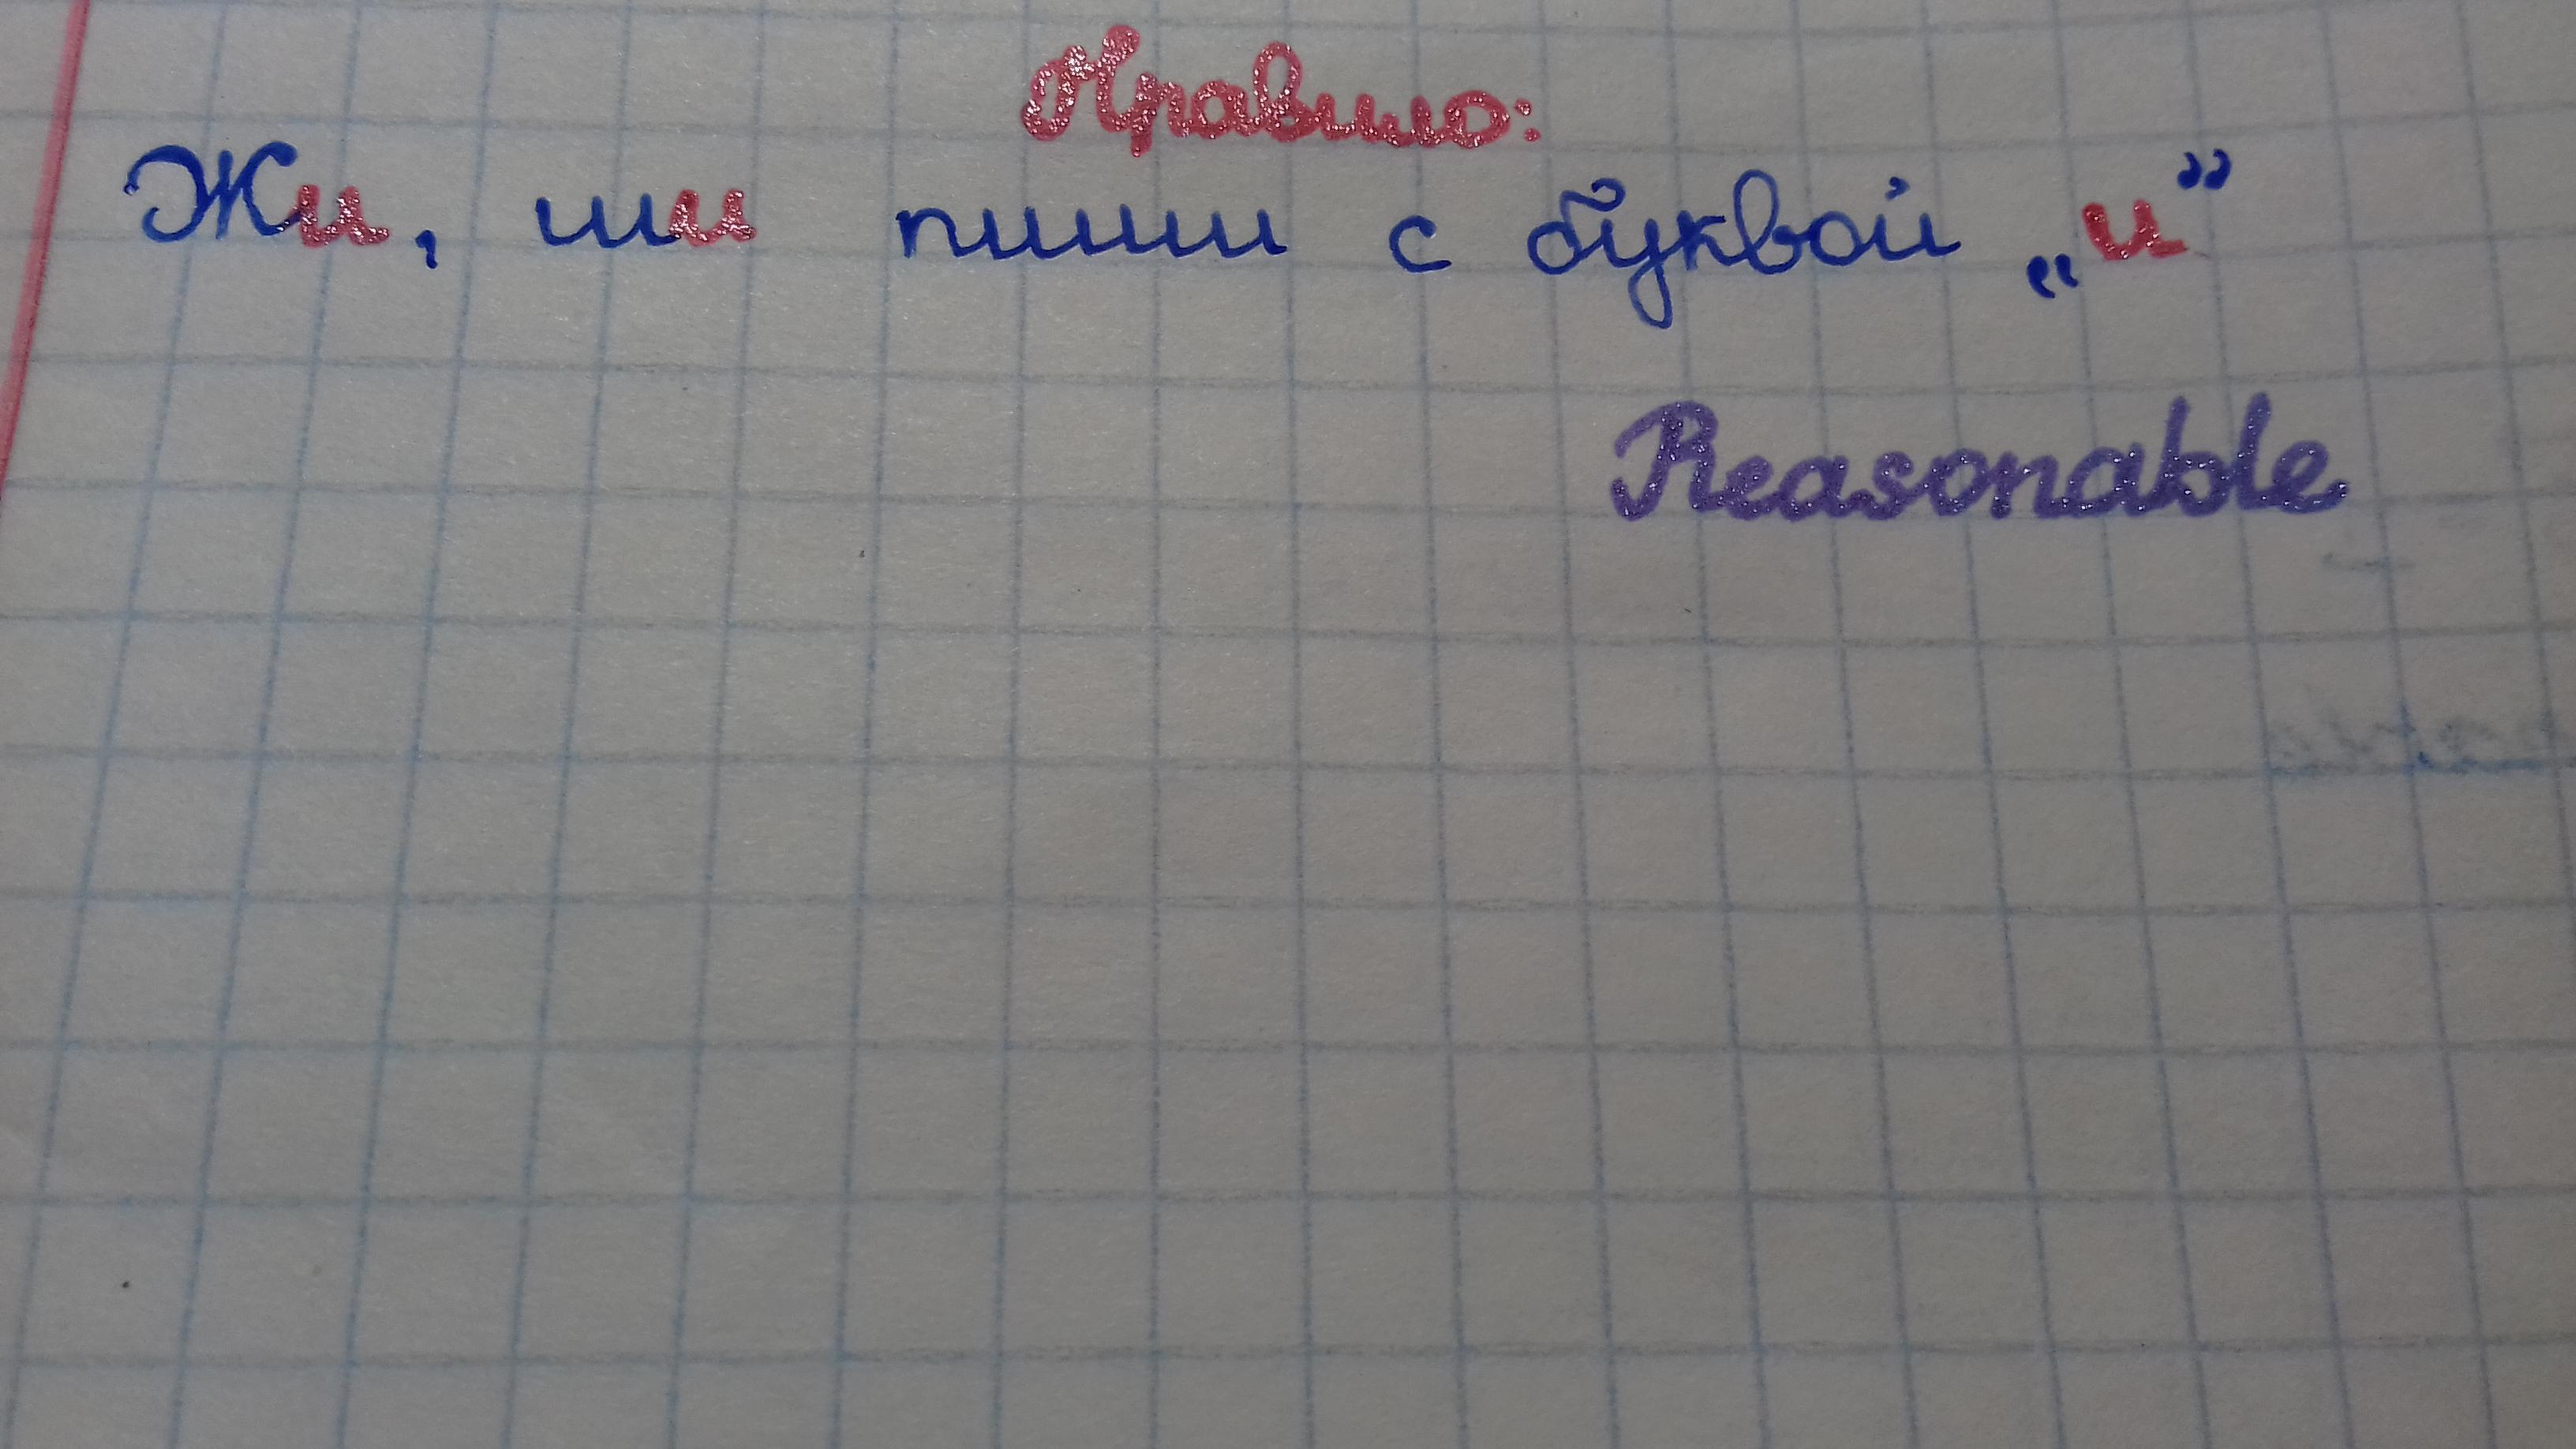 Правило:
Жи, ши пиши с буквой „и”
Reasonable